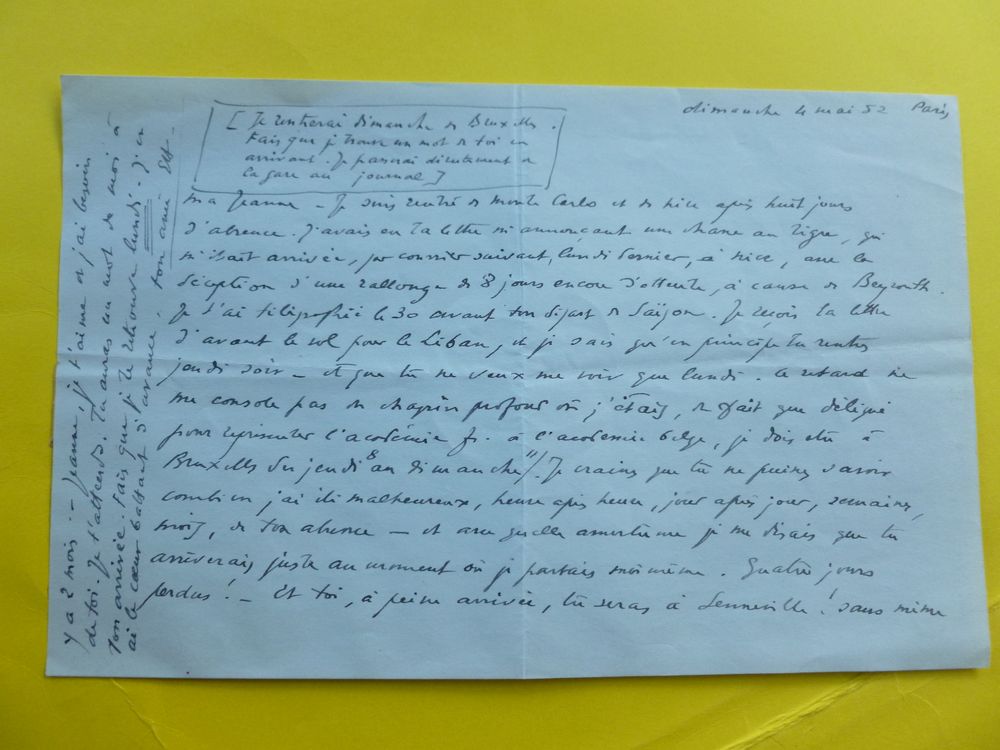 dimanche 4 mai 52 Paris
[ Je rentrerai dimanche de Bruxelles.
Fais que je trouve un mot de toi en
arrivant. Je passerai directement de
la gare au journal ]
Ma Jeanne – Je suis rentré de Monte Carlo et de Nice après huit jours
d'absence. J'avais eu ta lettre m'annonçant une chasse au tigre, qui
m'était arrivée, par courrier suivant, lundi dernier, à Nice, avec la
déception d'une rallonge de 8 jours encore d'attente, à cause de Beyrouth.
Je t'ai télégraphié le 30 avant ton départ de Saïgon. Je reçois ta lettre
d'avant le vol pour le Liban, et je sais qu'en principe tu rentres
jeudi soir – et que tu ne veux me voir que lundi. Ce retard ne
me console pas du chagrin profond où j'étais, du fait que délégué
pour représenter l'académie fr. à l'académie belge, je dois être à
Bruxelles du jeudi 8 au dimanche 11. Je crains que tu ne puisses savoir
combien j'ai été malheureux, heure après heure, jour après jour, semaines,
mois, de ton absence – et avec quelle amertume je me disais que tu
arriverais juste au moment où je partais moi même. Quatre jours
perdus! – Et toi, à peine arrivée, tu seras à Senneville! sans même
y a 2 mois. – Jeanne, je t'aime et j'ai besoin
de toi. Je t'attends. Tu auras un mot de moi à
ton arrivée. Fais que je te retrouve lundi. J'en
ai le cœur battant d'avance, ton amié